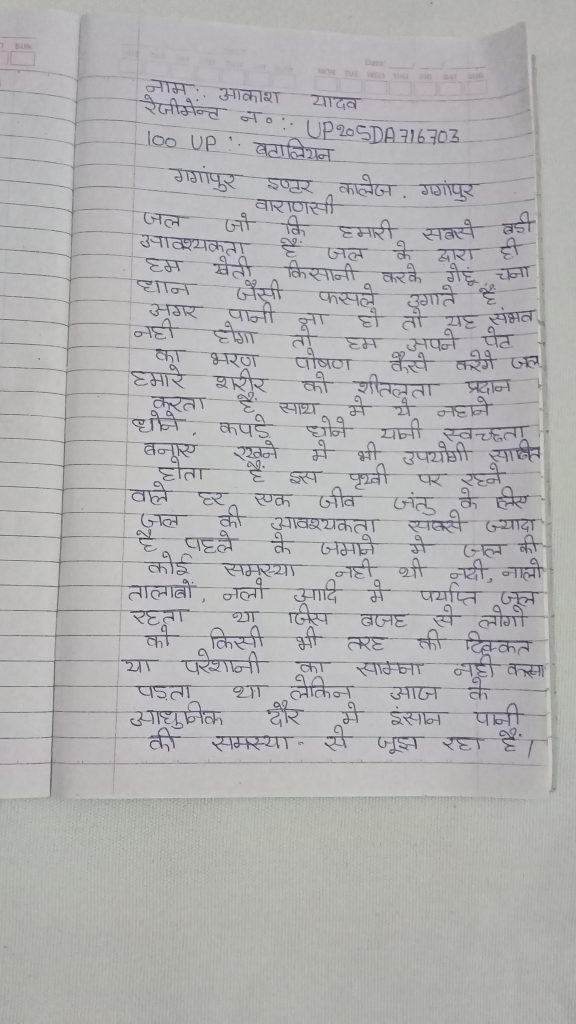 SUN
DATE
MON TUE WED THU FRI SAT SUN
नाम :. आकाश यादव
रेजीमेन्ट न० :. UP20SDA716703
100 UP :. बटालियन
गगांपुर इण्टर कालेज. गगांपुर
वाराणसी
जल जो कि हमारी सबसे बड़ी
आवश्यकता हैं जल के द्वारा ही
हम खेती किसानी करके गेहूं चना
धान जैसी फसले उगाते हैं
अगर पानी ना हो तो यह संभव
नही होगा तो हम अपने पेट
का भरण पोषण कैसे करेगे जल
हमारे शरीर को शीतलता प्रदान
करता हैं साथ मे ये नहाने
धोने, कपड़े धोने यानी स्वच्छता
बनाए रखने मे भी उपयोगी साबित
होता हैं इस पृथ्वी पर रहने
वाले हर एक जीव जंतु के लिए
जल की आवश्यकता सबसे ज्यादा
है पहले के जमाने मे जल की
कोई समस्या नही थी नदी, नालो
तालाबों, नलो आदि मे पर्याप्त जल
रहता था जिस वजह से लोगो
को किसी भी तरह की दिक्कत
या परेशानी का सामना नही करना
पड़ता था लेकिन आज के
आधुनिक दौर मे इंसान पानी
की समस्या - से जूझ रहा हैं।